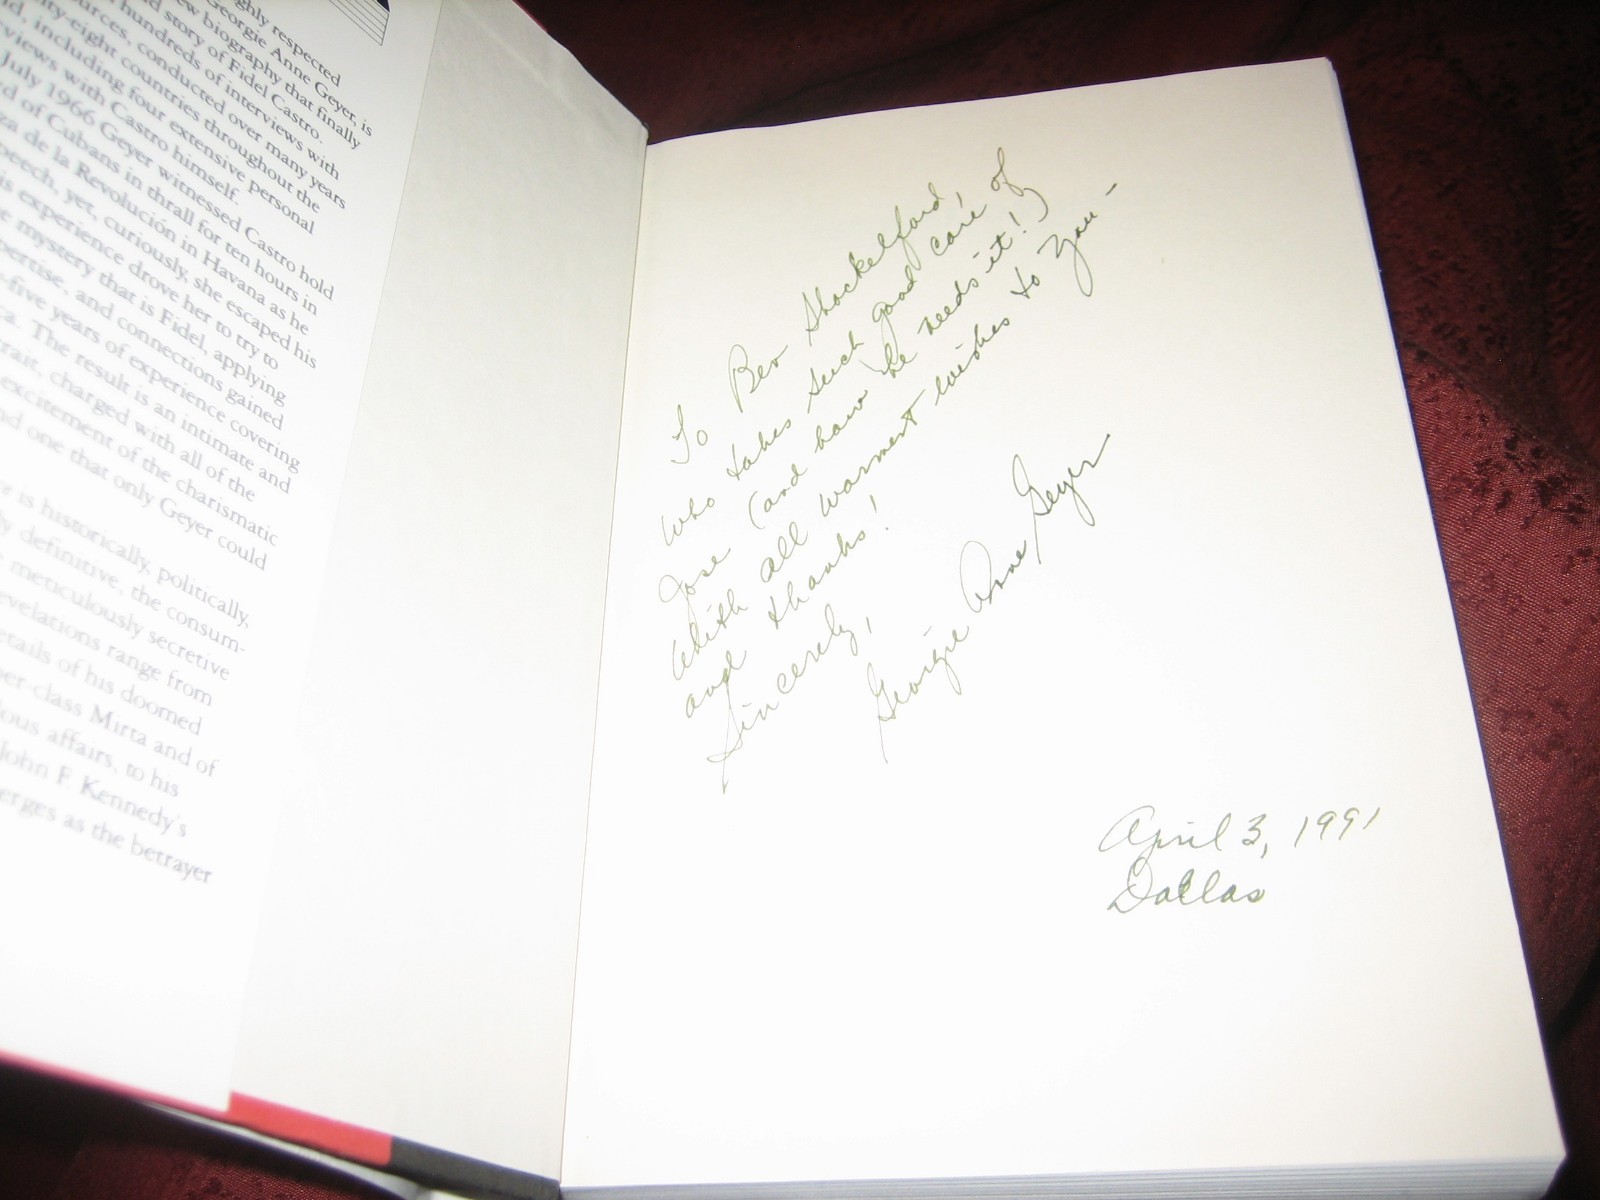 ghly respected
Georgie Anne Geyer, is
ew biography that finally
d story of Fidel Castro.
hundreds of interviews with
ources, conducted over many years
ty-eight countries throughout the
d, including four extensive personal
views with Castro himself.
July 1966 Geyer witnessed Castro hold
d of Cubans in thrall for ten hours in
za de la Revolución in Havana as he
peech, yet, curiously, she escaped his
is experience drove her to try to
e mystery that is Fidel, applying
pertise, and connections gained
-five years of experience covering
ca. The result is an intimate and
trait, charged with all of the
excitement of the charismatic
nd one that only Geyer could
e is historically, politically,
ly definitive, the consum-
meticulously secretive
evelations range from
etails of his doomed
per-class Mirta and of
lous affairs, to his
John F. Kennedy's
erges as the betrayer
To Bev Shackelford,
who takes such good care of
Jose (and how he needs it!)
With all warmest wishes to you -
and thanks!
Sincerely,
Georgie Anne Geyer
April 3, 1991
Dallas